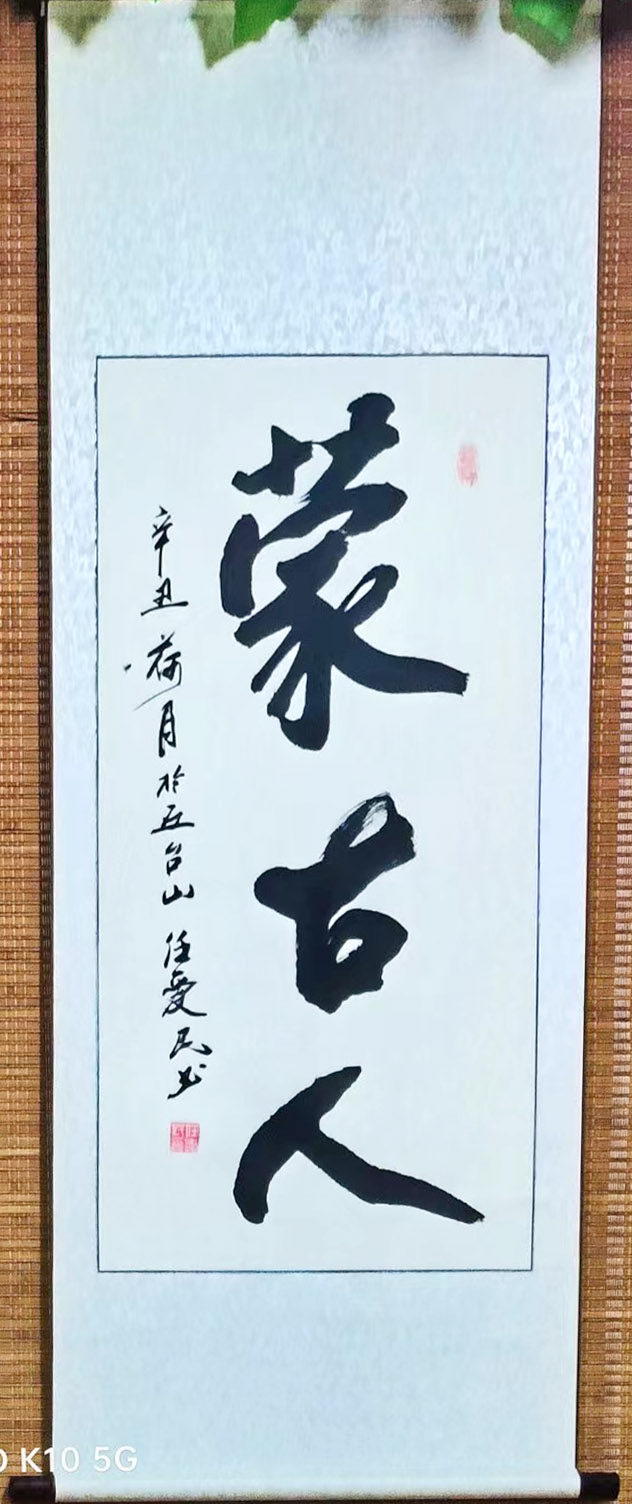 蒙古人
辛丑荷月於五台山任爱民书
K10 5G